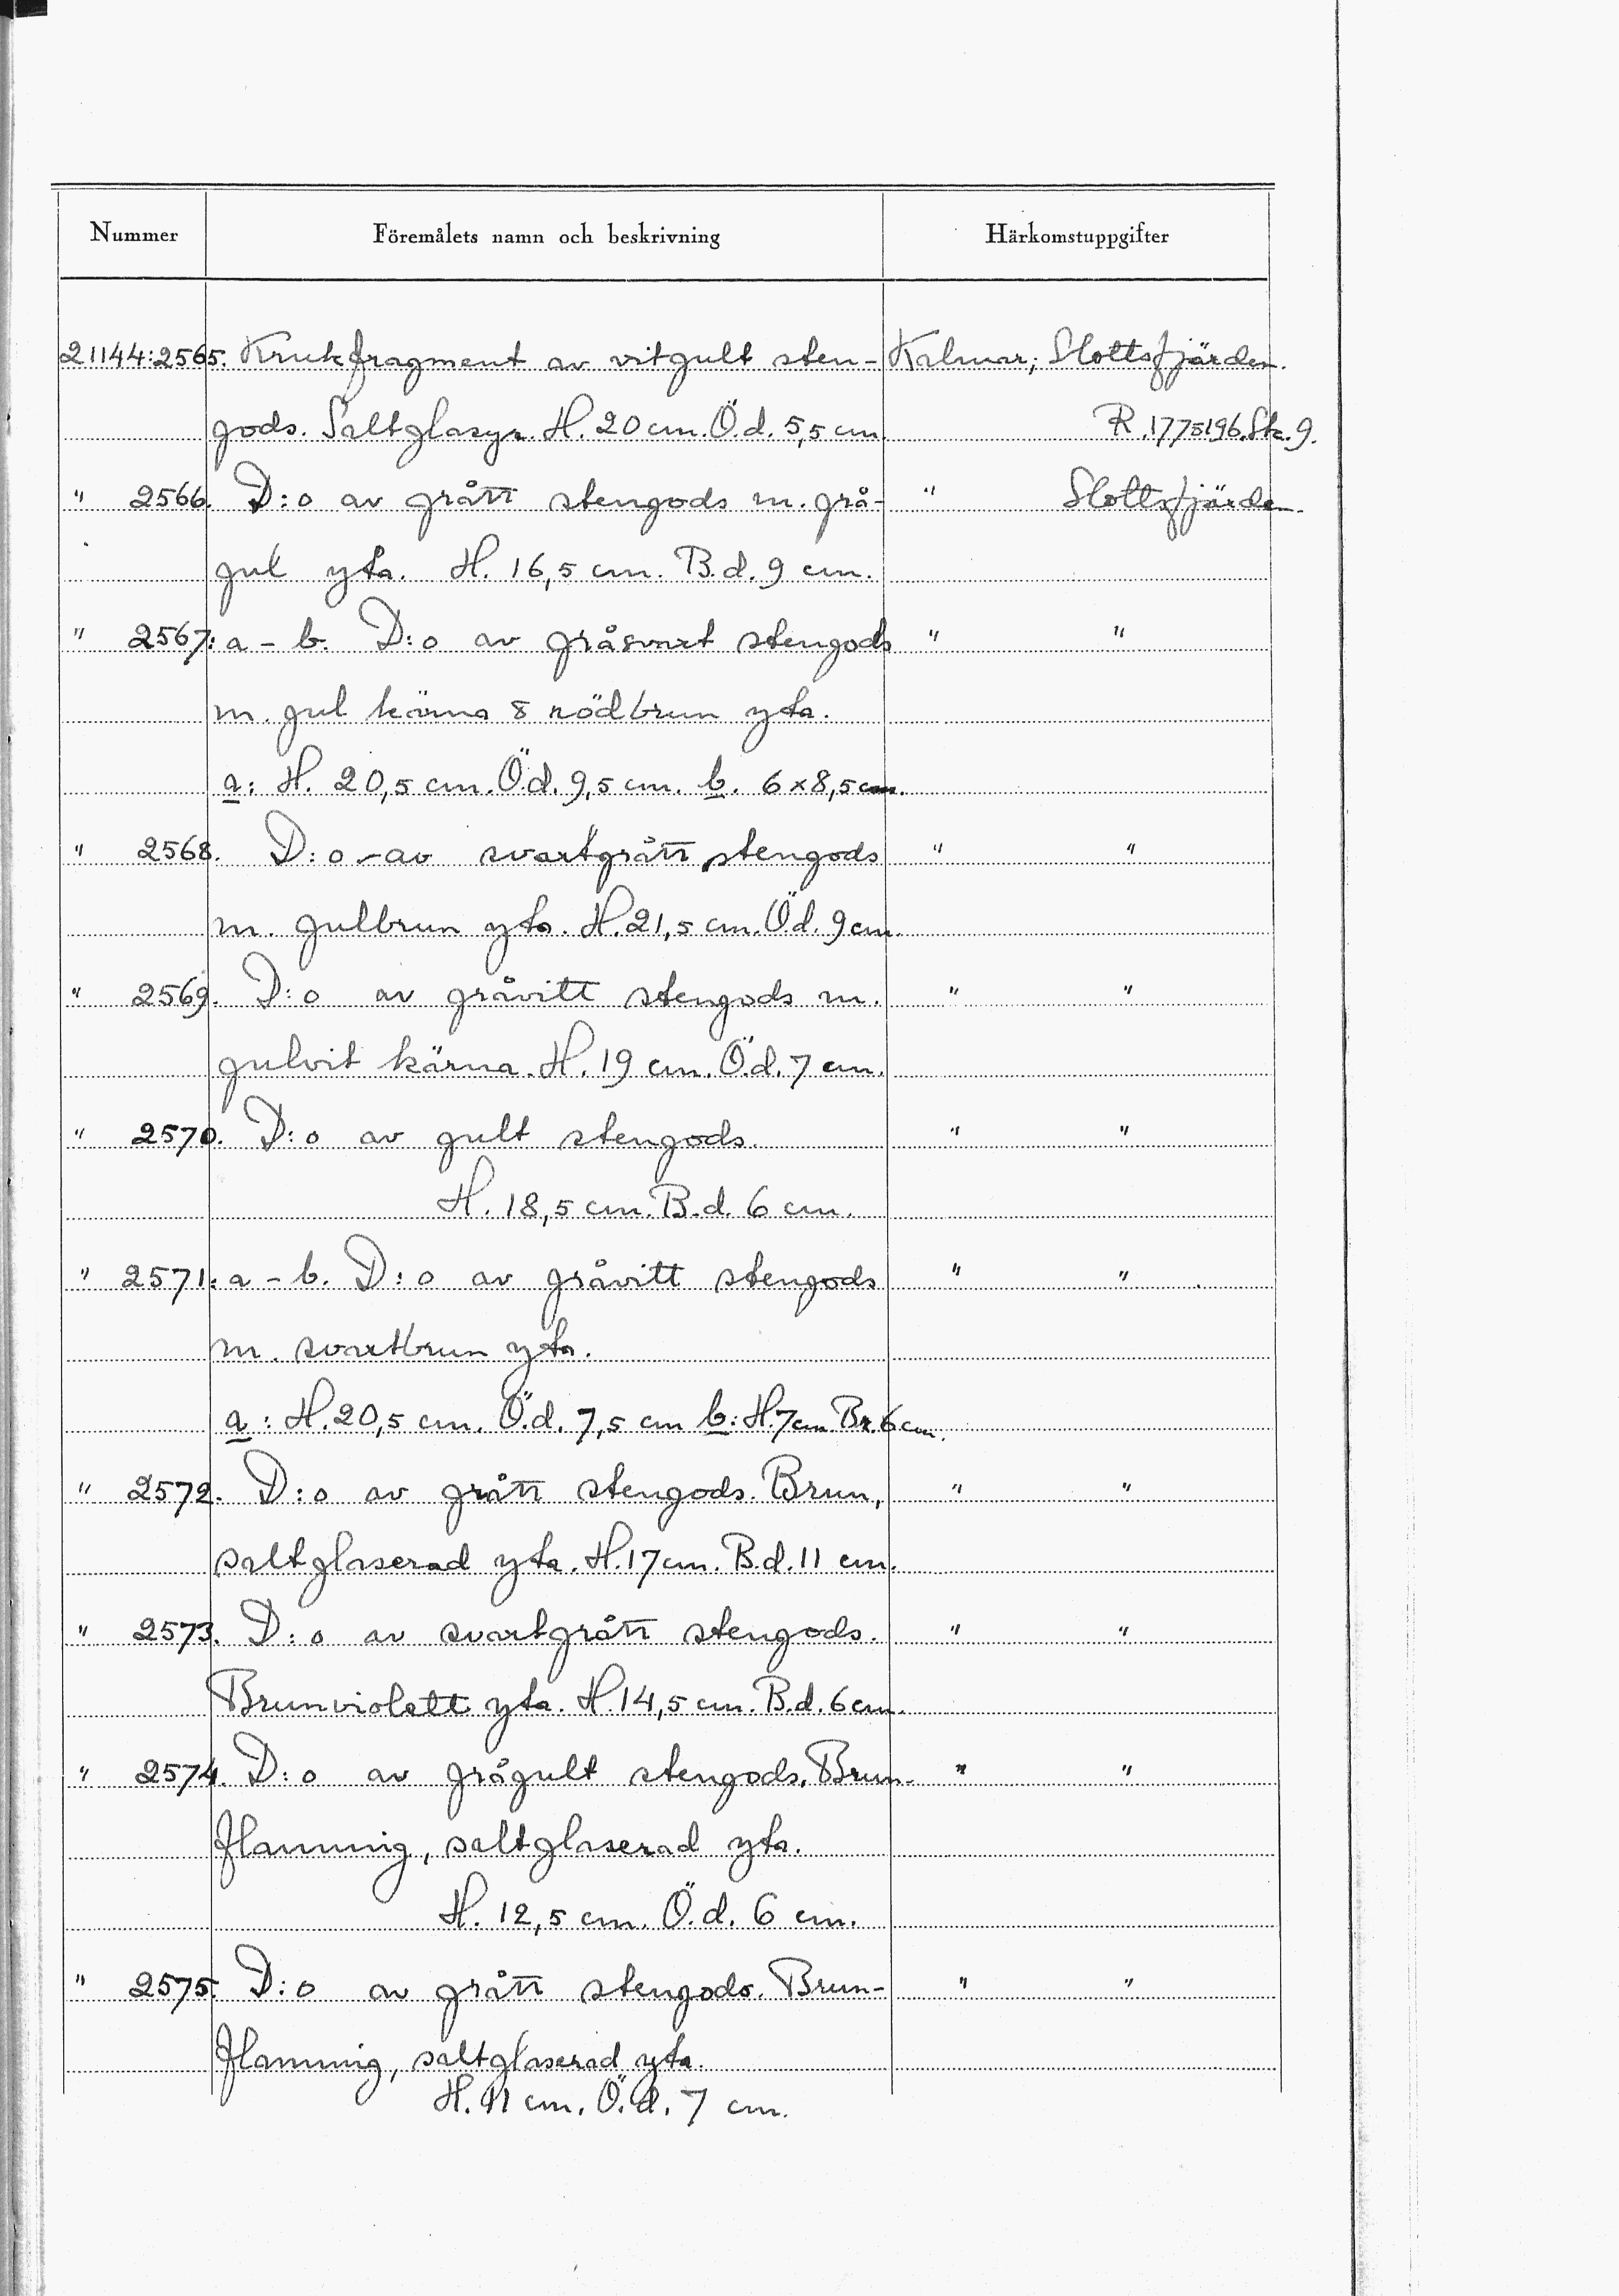 Nummer Föremålets namn och beskrivning Härkomstuppgifter
21144:2565. Krukfragment av vitgult sten- Kalmar, Slottsfjärden.
gods. Saltglasyr. H. 20 cm. Ö.d. 5,5 cm. R.1775196.Sk.9.
" 2566. D:o av grått stengods m. grå- " Slottsfjärden.
gul yta. H. 16,5 cm. B.d. 9 cm.
" 2567: a - b. D:o av gråsvart stengods " "
m. gul kärna & rödbrun yta.
a: H. 20,5 cm. Ö.d. 9,5 cm. b. 6×8,5 cm.
" 2568. D:o - av svartgrått stengods " "
m. gulbrun yta. H. 21,5 cm. Ö.d. 9 cm.
" 2569. D:o av gråvitt stengods m. " "
gulvit kärna. H. 19 cm. Ö.d. 7 cm.
" 2570. D:o av gult stengods. " "
H. 18,5 cm. B.d. 6 cm.
" 2571: a - b. D:o av gråvitt stengods " "
m. svartbrun yta.
a: H. 20,5 cm. Ö.d. 7,5 cm b: H. 7 cm. Br. 6 cm.
" 2572. D:o av grått stengods. Brun, " "
saltglaserad yta. H. 17 cm. B.d. 11 cm.
" 2573. D:o av svartgrått stengods. " "
Brunviolett yta. H. 14,5 cm. B.d. 6 cm.
" 2574. D:o av grågult stengods. Brun- " "
flammig, saltglaserad yta.
H. 12,5 cm. Ö.d. 6 cm.
" 2575. D:o av grått stengods. Brun- " "
flammig, saltglaserad yta.
H. 11 cm. Ö.d. 7 cm.